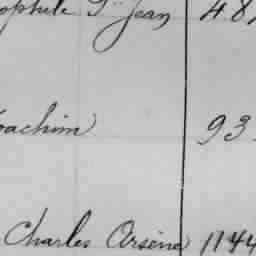 ophile St Jean 48
oachim 93
Charles Arsène 1144